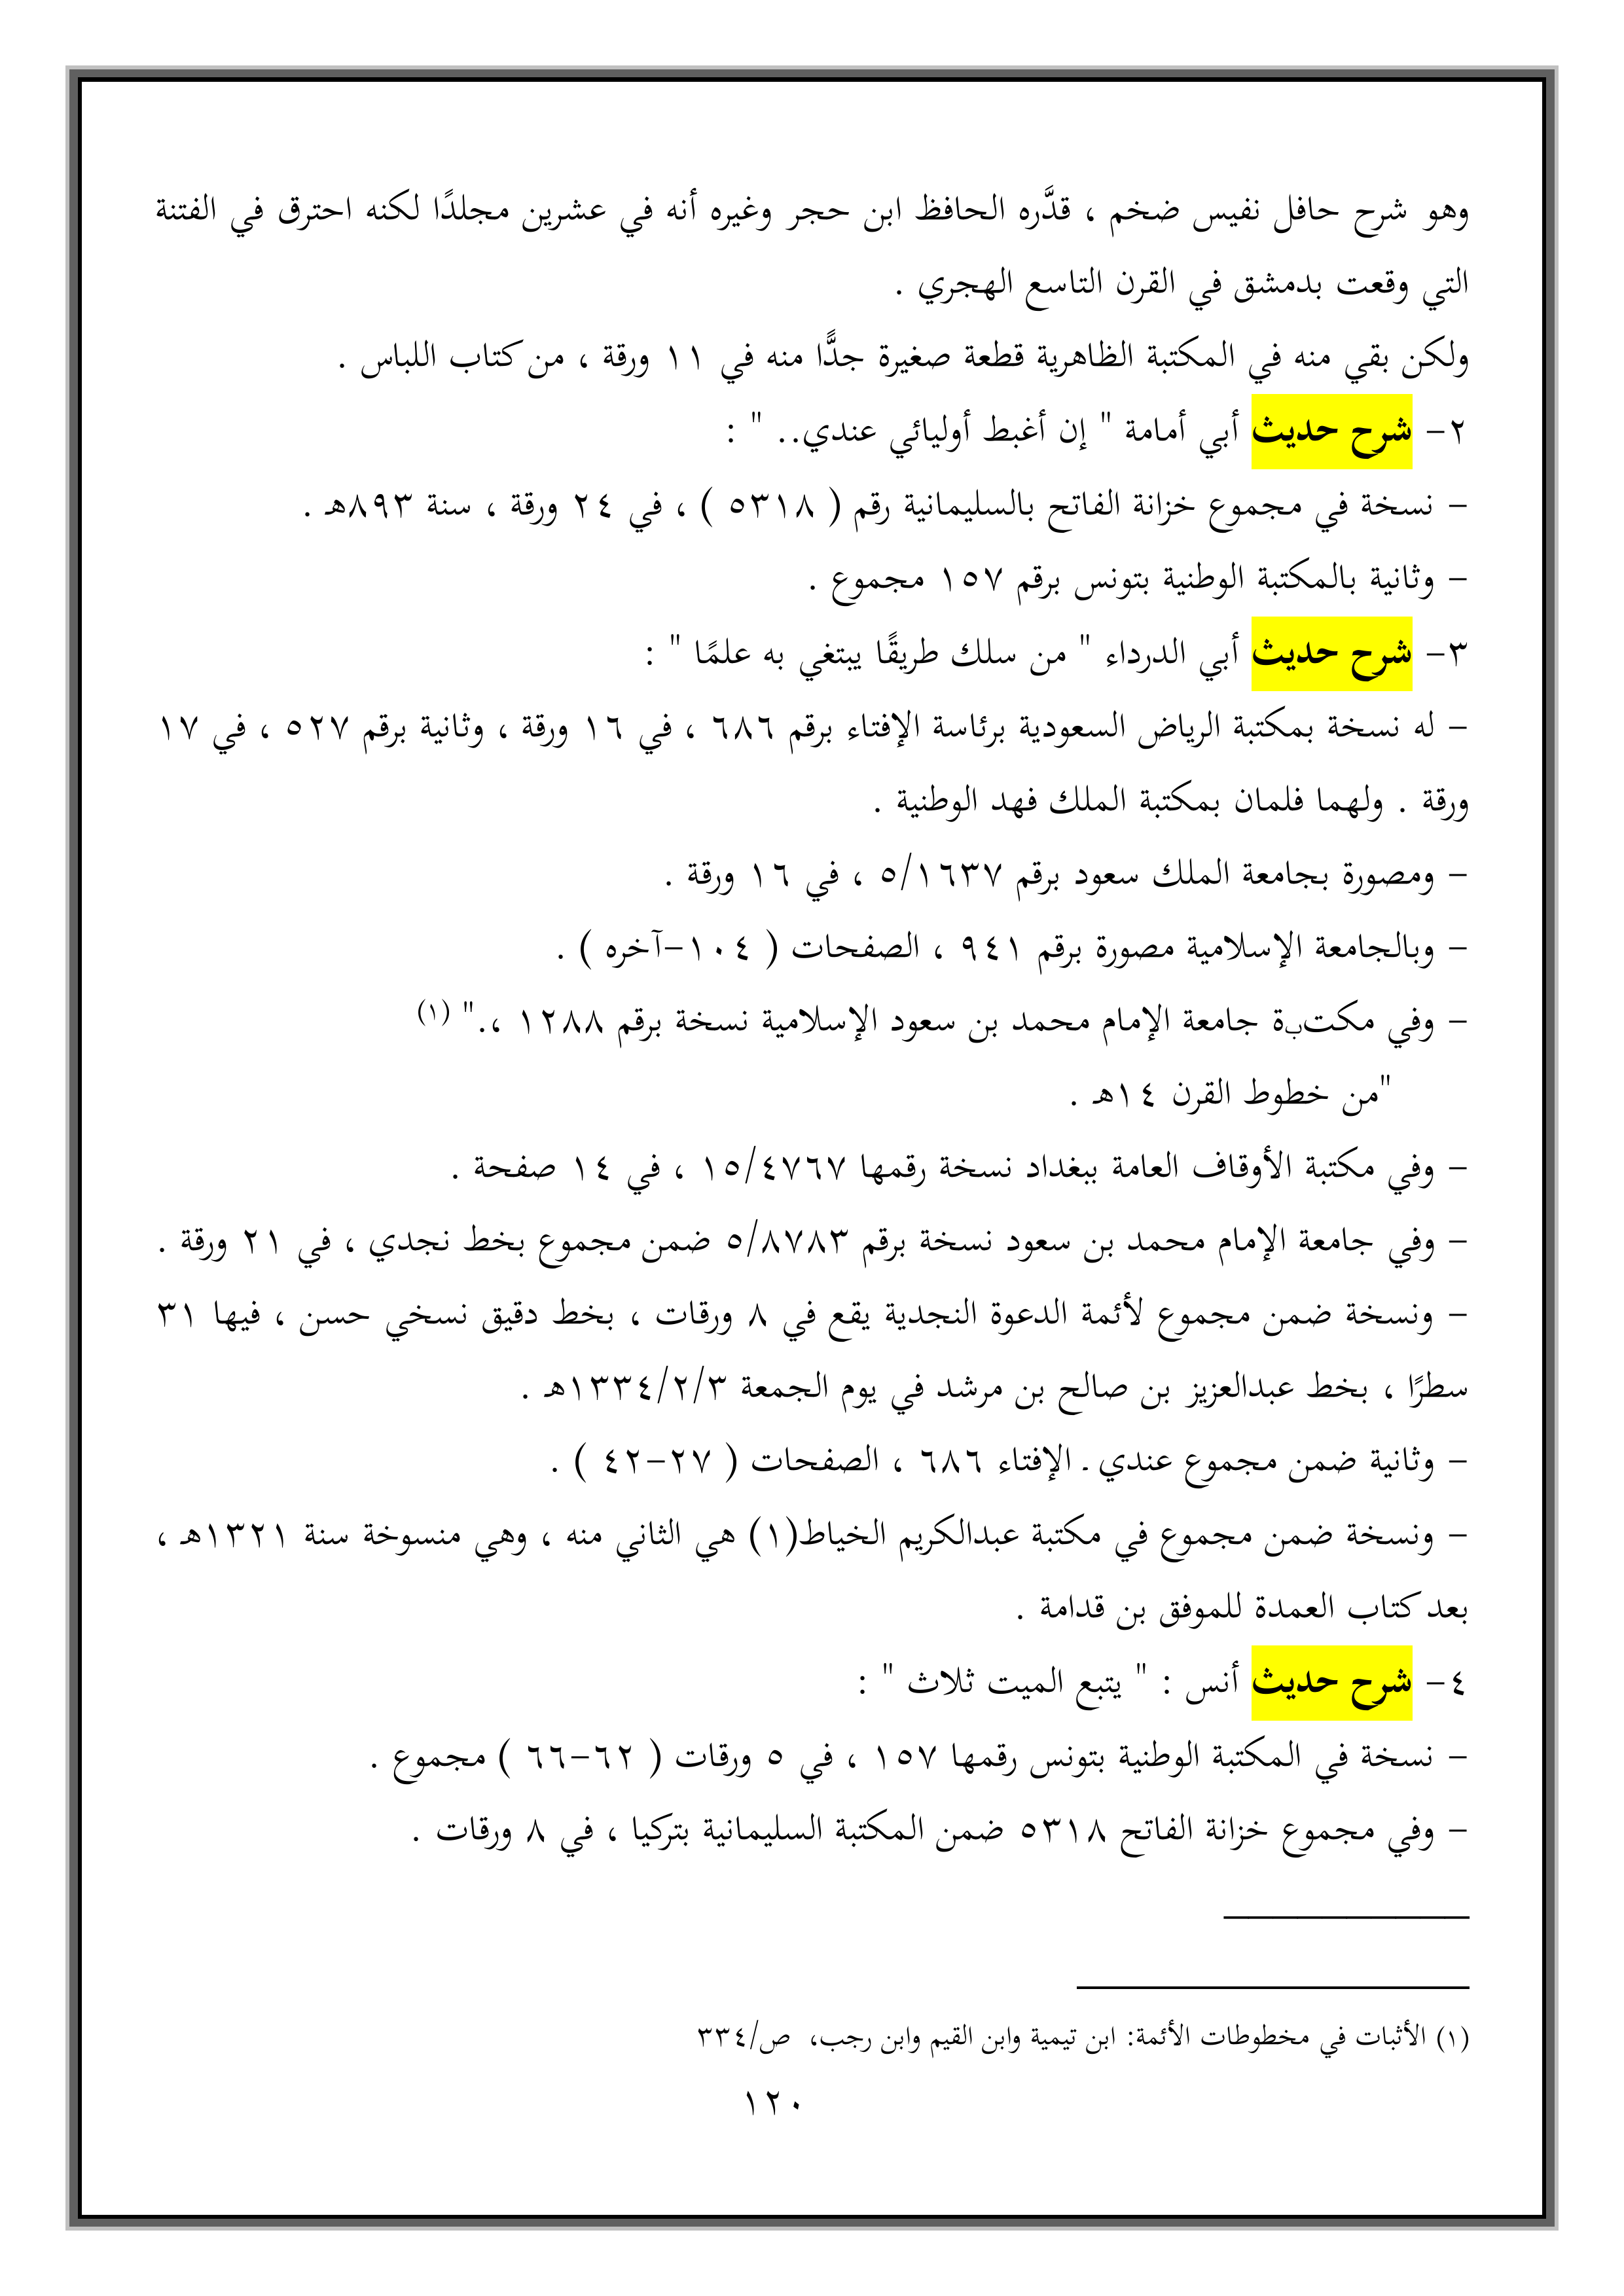 وهو شرح حافل نفيس ضخم ، قدَّره الحافظ ابن حجر وغيره أنه في عشرين مجلدًا لكنه احترق في الفتنة
التي وقعت بدمشق في القرن التاسع الهجري .
ولكن بقي منه في المكتبة الظاهرية قطعة صغيرة جدًّا منه في ١١ ورقة ، من كتاب اللباس .
٢- شرح حديث أبي أمامة " إن أغبط أوليائي عندي.. " :
- نسخة في مجموع خزانة الفاتح بالسليمانية رقم ( ٥٣١٨ ) ، في ٢٤ ورقة ، سنة ٨٩٣هـ .
- وثانية بالمكتبة الوطنية بتونس برقم ١٥٧ مجموع .
٣- شرح حديث أبي الدرداء " من سلك طريقًا يبتغي به علمًا " :
- له نسخة بمكتبة الرياض السعودية برئاسة الإفتاء برقم ٦٨٦ ، في ١٦ ورقة ، وثانية برقم ٥٢٧ ، في ١٧
ورقة . ولهما فلمان بمكتبة الملك فهد الوطنية .
- ومصورة بجامعة الملك سعود برقم ٥/١٦٣٧ ، في ١٦ ورقة .
- وبالجامعة الإسلامية مصورة برقم ٩٤١ ، الصفحات ( ١٠٤-آخره ) .
- وفي مكتبة جامعة الإمام محمد بن سعود الإسلامية نسخة برقم ١٢٨٨ ،." (١)
"من خطوط القرن ١٤هـ .
- وفي مكتبة الأوقاف العامة ببغداد نسخة رقمها ١٥/٤٧٦٧ ، في ١٤ صفحة .
- وفي جامعة الإمام محمد بن سعود نسخة برقم ٥/٨٧٨٣ ضمن مجموع بخط نجدي ، في ٢١ ورقة .
- ونسخة ضمن مجموع لأئمة الدعوة النجدية يقع في ٨ ورقات ، بخط دقيق نسخي حسن ، فيها ٣١
سطرًا ، بخط عبدالعزيز بن صالح بن مرشد في يوم الجمعة ١٣٣٤/٢/٣هـ .
- وثانية ضمن مجموع عندي ـ الإفتاء ٦٨٦ ، الصفحات ( ٢٧-٤٢ ) .
- ونسخة ضمن مجموع في مكتبة عبدالكريم الخياط(١) هي الثاني منه ، وهي منسوخة سنة ١٣٢١هـ ،
بعد كتاب العمدة للموفق بن قدامة .
٤- شرح حديث أنس : " يتبع الميت ثلاث " :
- نسخة في المكتبة الوطنية بتونس رقمها ١٥٧ ، في ٥ ورقات ( ٦٢-٦٦ ) مجموع .
- وفي مجموع خزانة الفاتح ٥٣١٨ ضمن المكتبة السليمانية بتركيا ، في ٨ ورقات .
(١) الأثبات في مخطوطات الأئمة: ابن تيمية وابن القيم وابن رجب، ص/٣٣٤
١٢٠